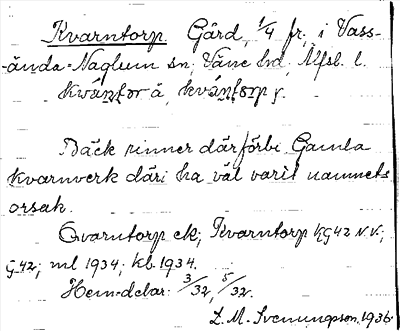 Kvarntorp Gård, 1/4 fr, i Vass-
ända-Naglum sn, Väne hd, Älfsb. l.
Bäck rinner därförbi. Gamla
kvarnverk däri ha väl varit namnets
orsak.
Qvarntorp ek; Kvarntorp kG42 N.V.;
G42; ml 1934; kb. 1934.
Hemdelar: 3/32, 5/32.
L. M. Svenungsson. 1936